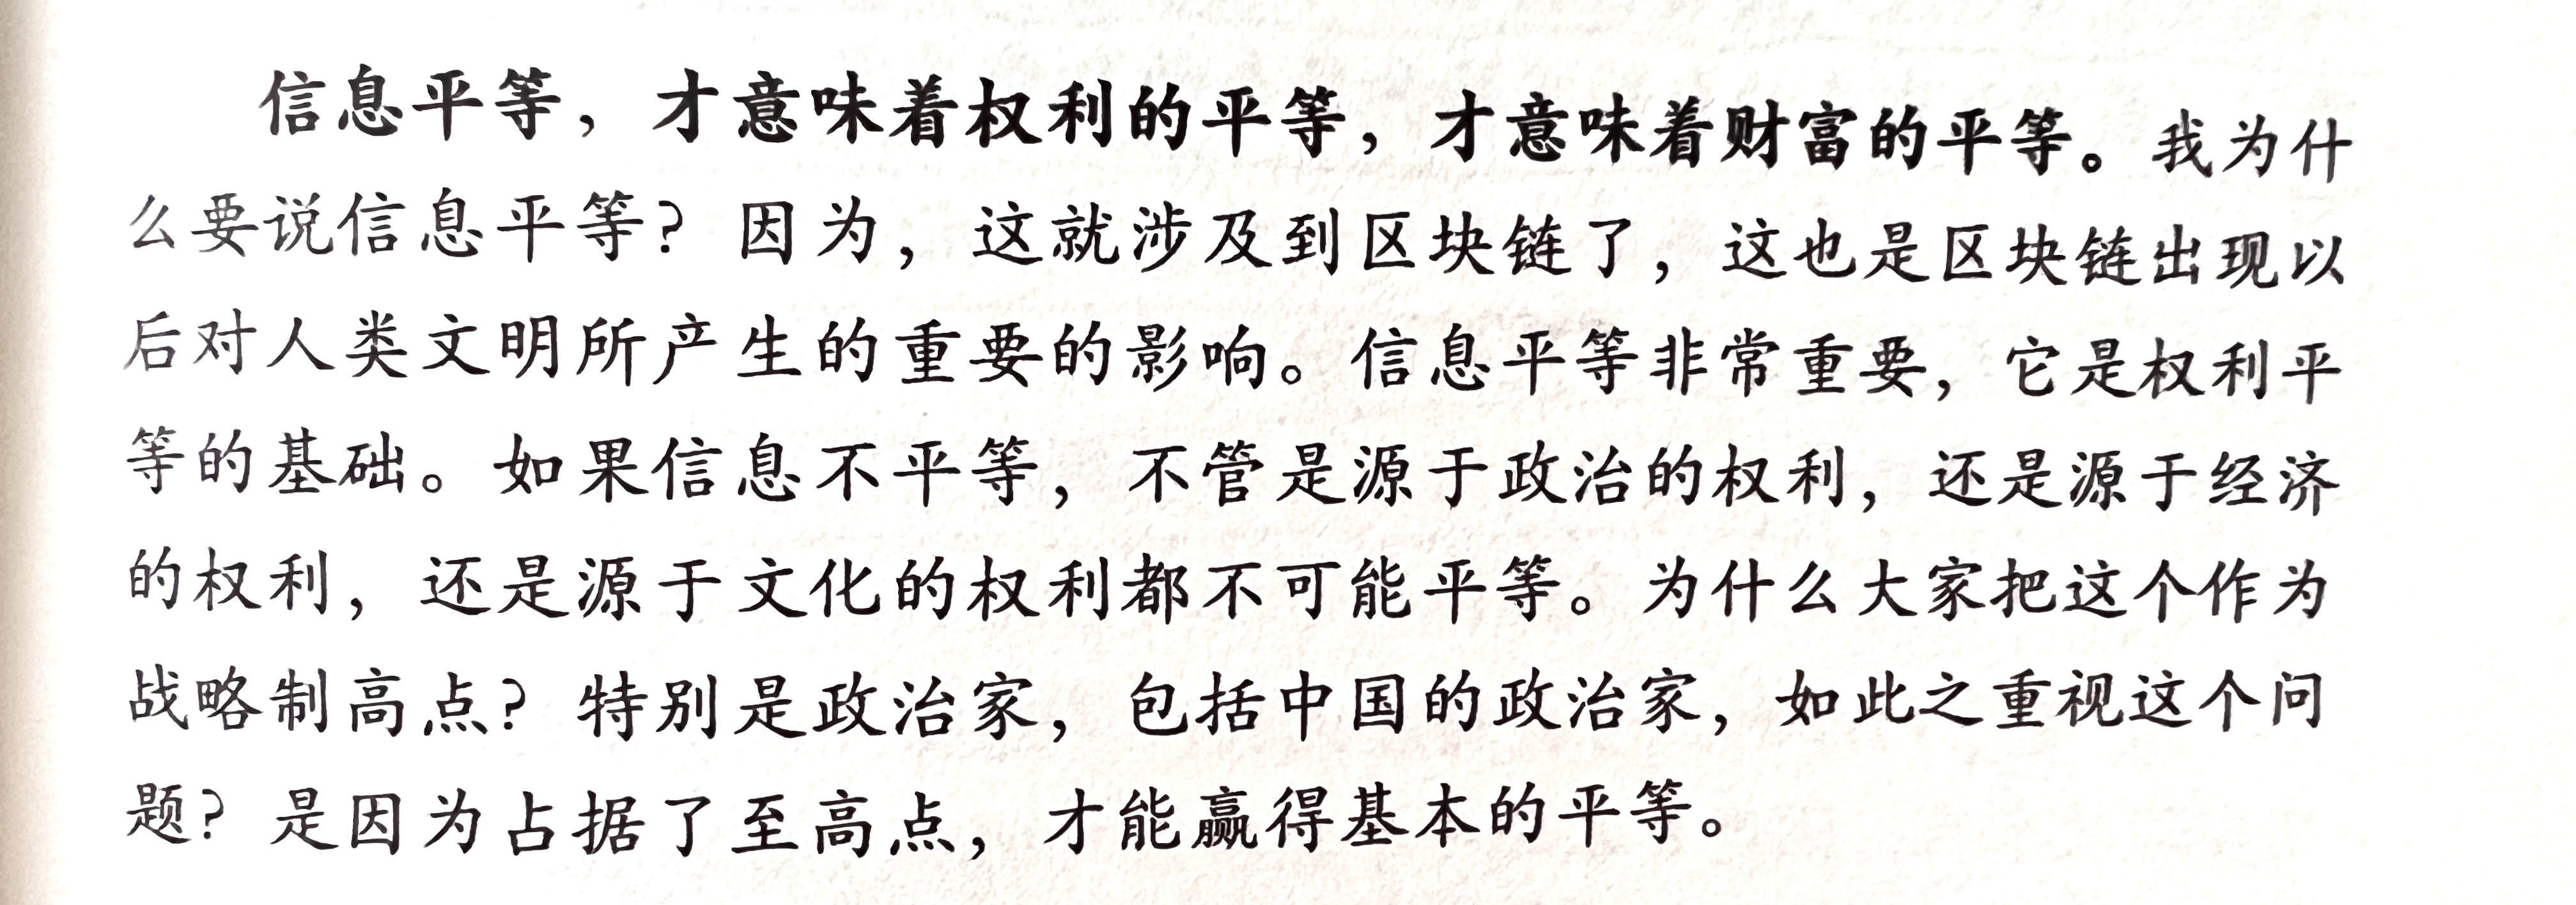 信息平等，才意味着权利的平等，才意味着财富的平等。我为什
么要说信息平等？因为，这就涉及到区块链了，这也是区块链出现以
后对人类文明所产生的重要的影响。信息平等非常重要，它是权利平
等的基础。如果信息不平等，不管是源于政治的权利，还是源于经济
的权利，还是源于文化的权利都不可能平等。为什么大家把这个作为
战略制高点？特别是政治家，包括中国的政治家，如此之重视这个问
题？是因为占据了至高点，才能赢得基本的平等。